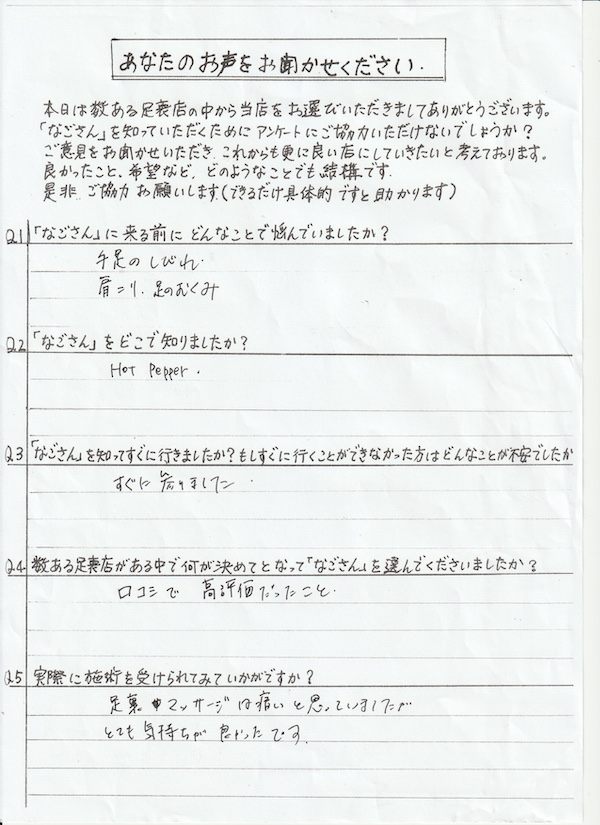 あなたのお声をお聞かせください.
本日は数ある足裏店の中から当店をお選びいただきましてありがとうございます。
「なごさん」を知っていただくためにアンケートにご協力いただけないでしょうか？
ご意見をお聞かせいただき、これからも更に良い店にしていきたいと考えております。
良かったこと、希望など、どのようなことでも結構です.
是非 ご協力お願いします(できるだけ具体的ですと助かります)
Q.1 「なごさん」に来る前にどんなことで悩んでいましたか？
手足のしびれ.
肩コリ. 足のむくみ
Q.2 「なごさん」をどこで知りましたか？
Hot Pepper.
Q.3 「なごさん」を知ってすぐに行きましたか？もしすぐに行くことができなかった方はどんなことが不安でしたか
すぐに 行きました.
Q.4 数ある足裏店がある中で何が決めてとなって「なごさん」を選んでくださいましたか？
口コミで 高評価だったこと.
Q.5 実際に施術を受けられてみていかがですか？
足裏 マッサージは痛いと思っていましたが
とても気持ちが良かったです.